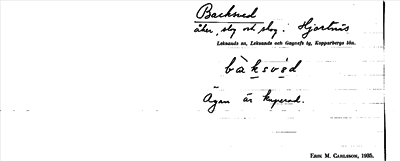 Backsved
åker, slog och skog. Hjortnäs
Leksands sn, Leksands och Gagnefs tg, Kopparbergs län.
bàksvèd
Ägan är kuperad.
ERIK M. CARLSSON, 1935.